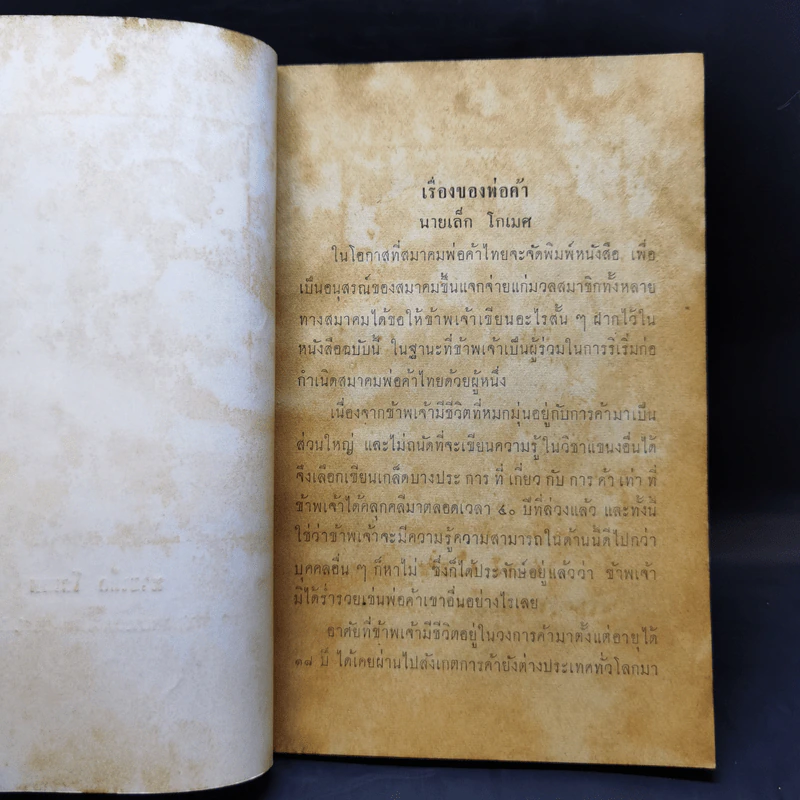 เรื่องของพ่อค้า
นายเล็ก โกเมศ
ในโอกาสที่สมาคมพ่อค้าไทยจะจัดพิมพ์หนังสือ เพื่อ
เป็นอนุสรณ์ของสมาคมขึ้นแจกจ่ายแก่มวลสมาชิกทั้งหลาย
ทางสมาคมได้ขอให้ข้าพเจ้าเขียนอะไรสั้น ๆ ฝากไว้ใน
หนังสือฉบับนี้ ในฐานะที่ข้าพเจ้าเป็นผู้ร่วมในการริเริ่มก่อ
กำเนิดสมาคมพ่อค้าไทยด้วยผู้หนึ่ง
เนื่องจากข้าพเจ้ามีชีวิตที่หมกมุ่นอยู่กับการค้ามาเป็น
ส่วนใหญ่ และไม่ถนัดที่จะเขียนความรู้ในวิชาแขนงอื่นได้
จึงเลือกเขียนเกล็ดบางประ การ ที่ เกี่ยว กับ การ ค้า เท่า ที่
ข้าพเจ้าได้คลุกคลีมาตลอดเวลา ๕๐ ปีที่ล่วงแล้ว และทั้งนี้
ใช่ว่าข้าพเจ้าจะมีความรู้ความสามารถในด้านนี้ดีไปกว่า
บุคคลอื่น ๆ ก็หาไม่ ซึ่งก็ได้ประจักษ์อยู่แล้วว่า ข้าพเจ้า
มิได้ร่ำรวยเช่นพ่อค้าเขาอื่นอย่างไรเลย
อาศัยที่ข้าพเจ้ามีชีวิตอยู่ในวงการค้ามาตั้งแต่อายุได้
๑๘ ปี ได้เคยผ่านไปสังเกตการค้ายังต่างประเทศทั่วโลกมา